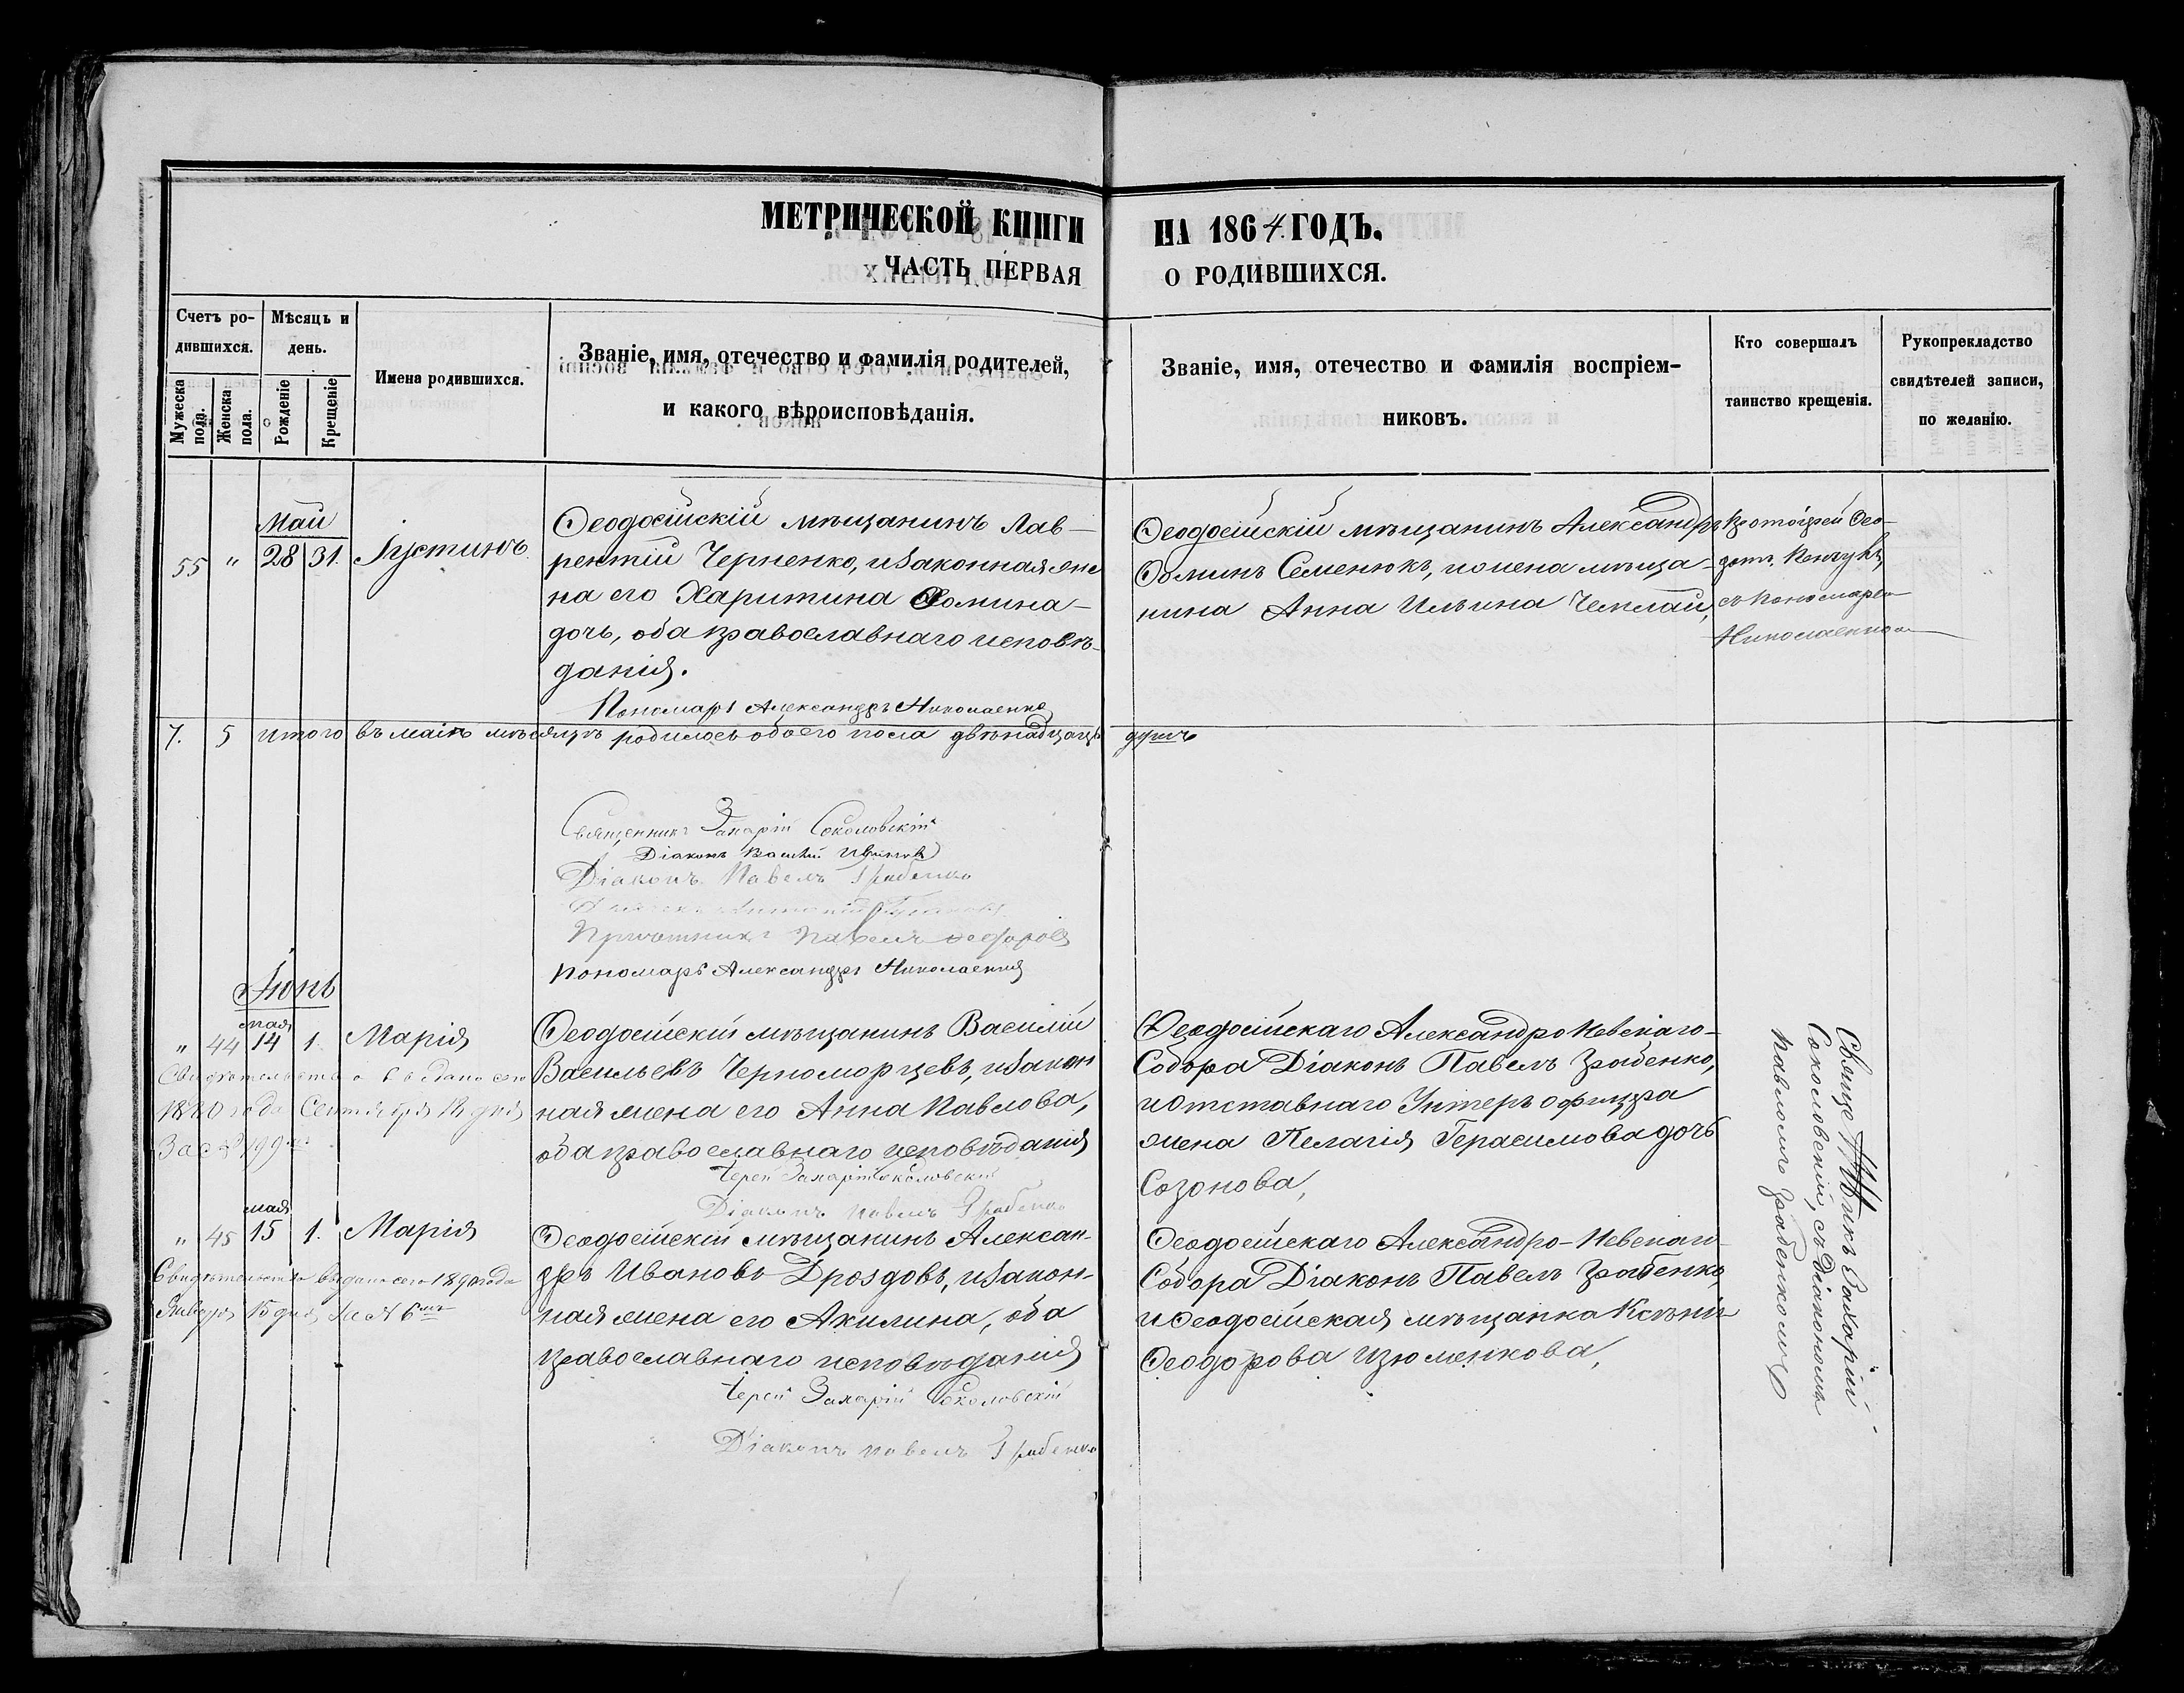 МЕТРИЧЕСКОЙ КНИГИ НА 1864 ГОДЪ.
ЧАСТЬ ПЕРВАЯ О РОДИВШИХСЯ.
Счетъ родившихся.
Мужеска пола.
Женска пола.
Мѣсяцъ и день.
Рожденіе
Крещеніе
Имена родившихся.
Званіе, имя, отечество и фамилія родителей,
и какого вѣроисповѣданія.
Званіе, имя, отечество и фамилія воспріем-
никовъ.
Кто совершалъ
таинство крещенія.
Рукоприкладство
свидѣтелей записи,
по желанію.
Май
55 " 28 31. Іустинъ
Ѳеодосійскій мѣщанинъ Лав-
рентій Черненко, и законная же
на его Харитина Ѳомина
дочь, оба православнаго исповѣ-
данія.
Пономарь Александръ Николаенко
Ѳеодосійскій мѣщанинъ Александръ
Ѳоминъ Семенюкъ, и жена мѣща-
нина Анна Ильина
Протоіерей Ѳео-
съ пономаремъ
Николаенкомъ
7. 5 итого въ маіѣ мѣсяцѣ родилось обоего пола двѣнадцать душъ
Священникъ Захарій Соколовскій
Діаконъ Василій
Діаконъ Павелъ Грабенко
Павелъ
Пономарь Александръ Николаенко
Іюнь
мая
" 44 14 1. Марія
Свидѣтельство выдано сего
18 0 года Сентября дня
За №
Ѳеодосійскій мѣщанинъ Василій
Васильевъ Черноморцевъ, и закон
ная жена его Анна Павлова,
оба православнаго исповѣданія
Іерей Захарій Соколовскій
Діаконъ Павелъ Грабенко
Ѳеодосійскаго Александро Невскаго
Собора Діаконъ Павелъ Грабенко,
и отставнаго Унтеръ офицера
жена Пелагія Герасимова дочь
Созонова,
Священникъ Захарій
Соколовскій, съ Діакономъ
Павломъ Грабенкомъ
мая
" 45 15 1. Марія
Свидѣтельство выдано сего 1890 года
Января 15 дня за № 6мъ
Ѳеодосійскій мѣщанинъ Алексан-
дръ Ивановъ Дроздовъ, и закон-
ная жена его Акилина, оба
православнаго исповѣданія
Іерей Захарій Соколовскій
Діаконъ Павелъ Грабенко
Ѳеодосійскаго Александро-Невскаго
Собора Діаконъ Павелъ Грабенко,
и Ѳеодосійская мѣщанка Ксенія
Ѳеодорова Изюменкова,